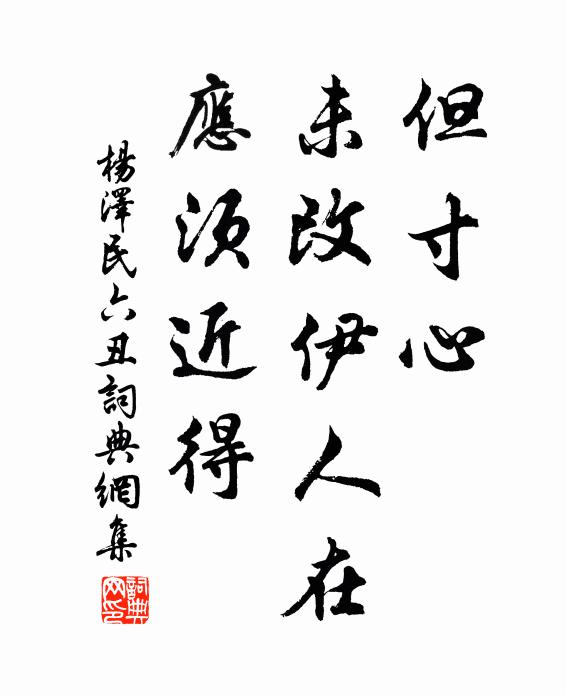 但寸心
未改伊人在
應須近得
楊澤民六丑詞典網集
詞典网印